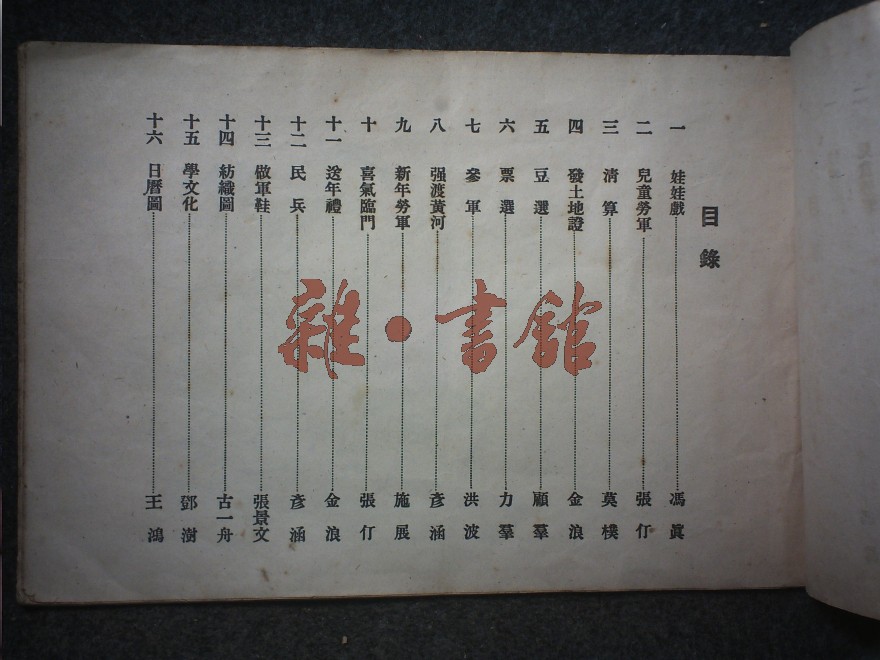 目錄
一 娃娃戲 馮眞
二 兒童勞軍 張仃
三 清算 莫樸
四 發土地證 金浪
五 豆選 顧羣
六 票選 力羣
七 參軍 洪波
八 强渡黃河 彥涵
九 新年勞軍 施展
十 喜氣臨門 張仃
十一 送年禮 金浪
十二 民兵 彥涵
十三 做軍鞋 張景文
十四 紡織圖 古一舟
十五 學文化 鄧澍
十六 日曆圖 王鴻
雜·書館